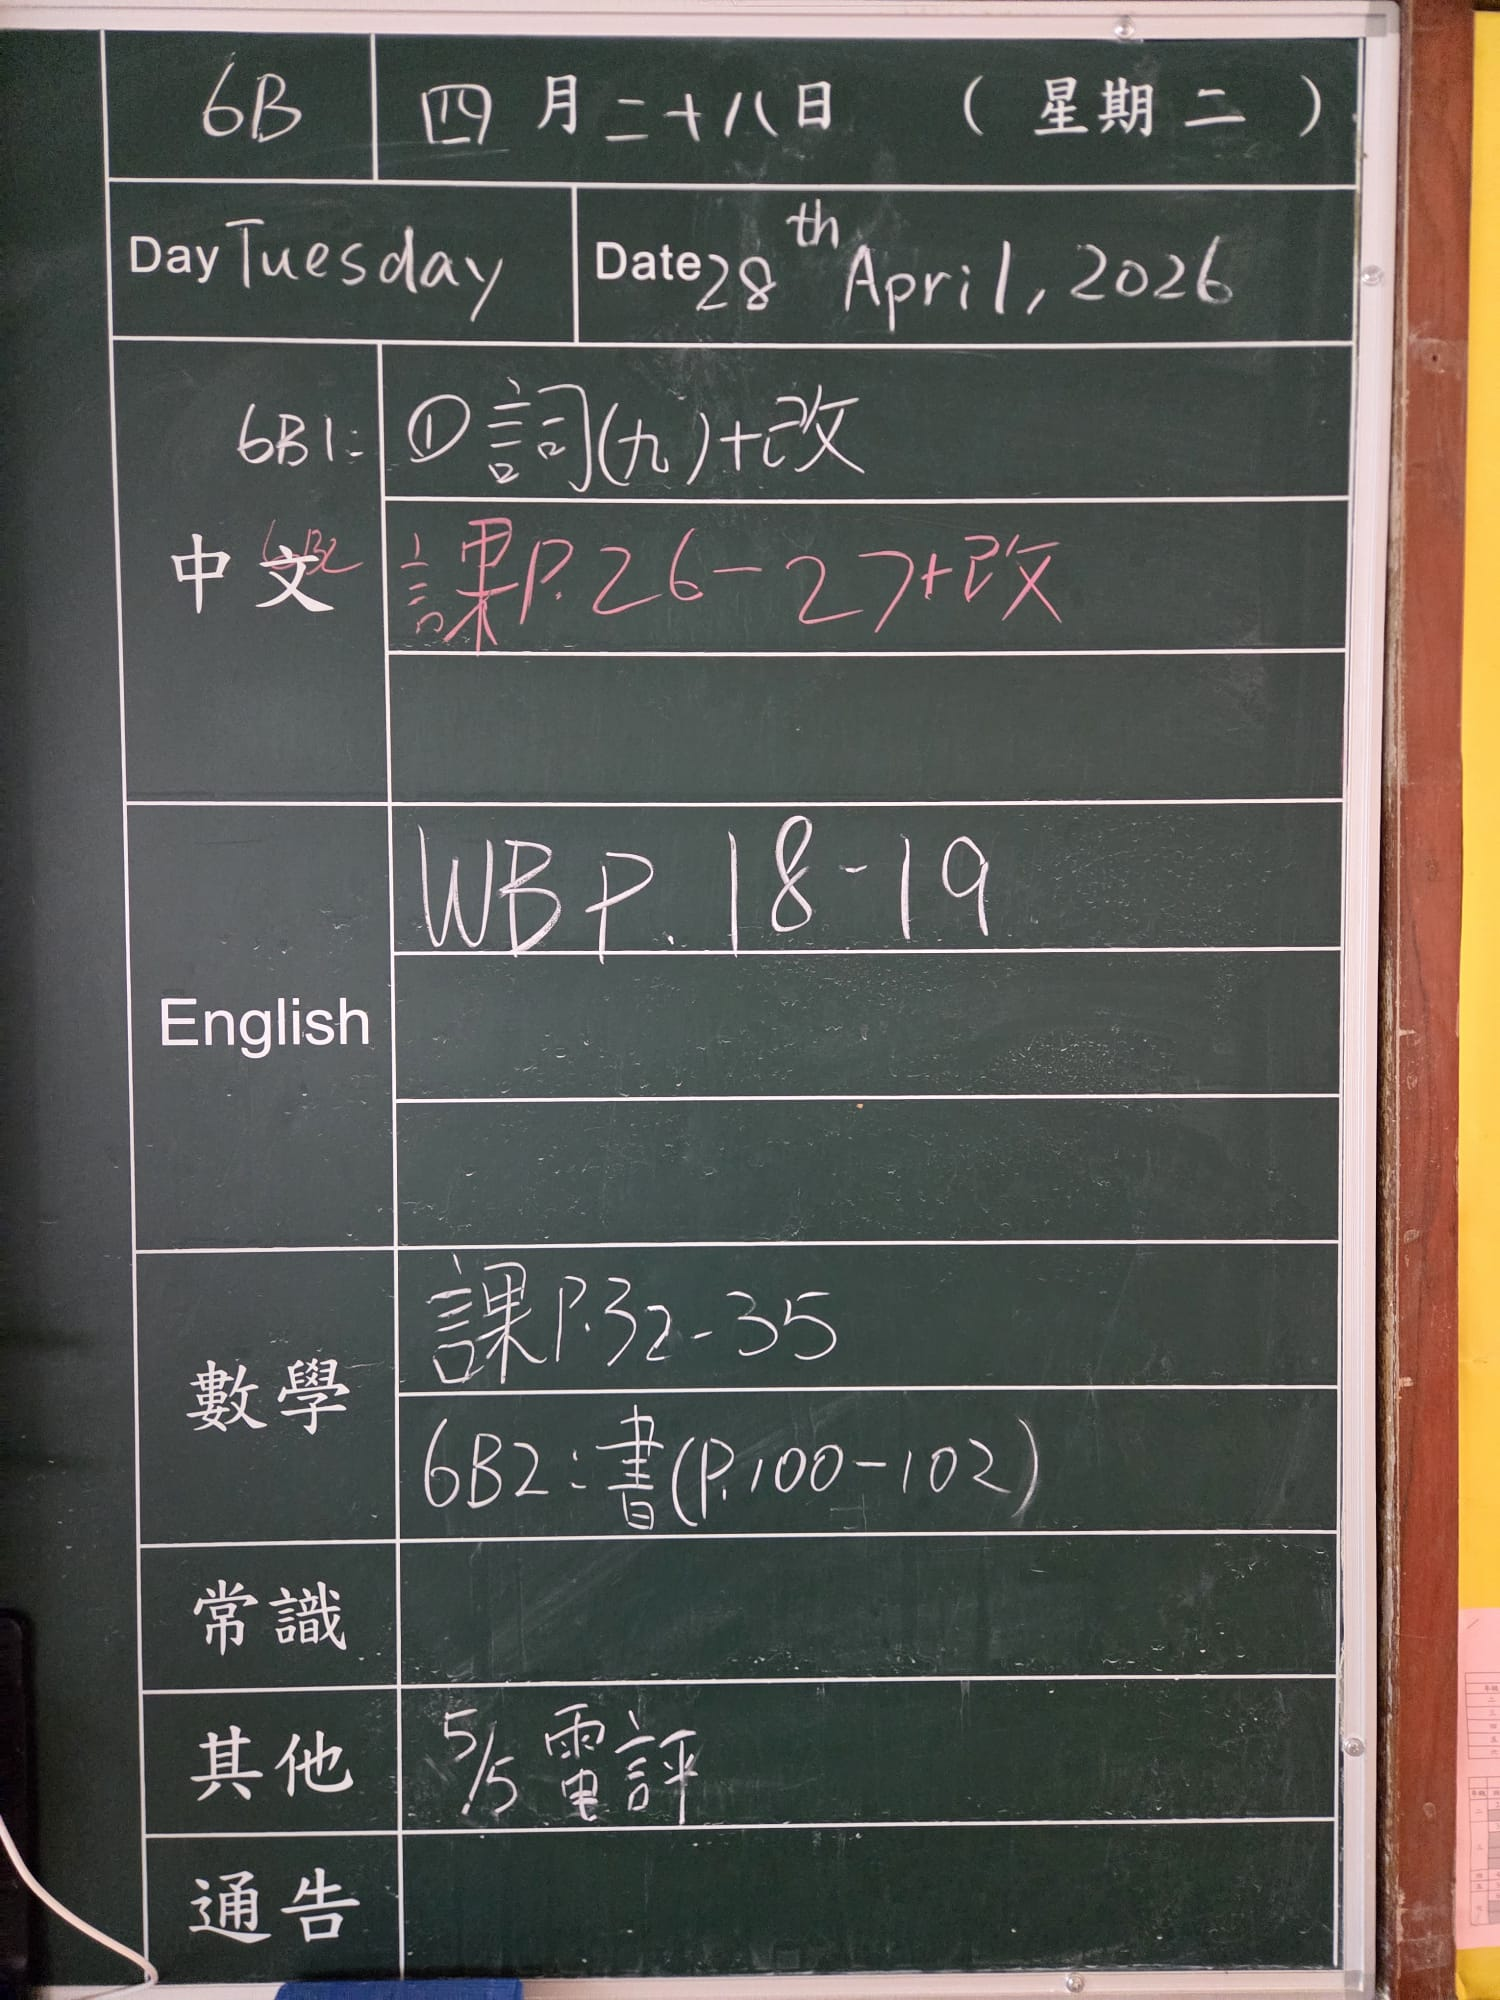 6B 四月二十八日 (星期二)
Day Tuesday Date 28th April, 2026
中文
6B1: ①詞(九)+改
6B2 課P.26-27+改
English
WB P. 18-19
數學
課P.32-35
6B2:書(P.100-102)
常識
其他 5/5 電評
通告